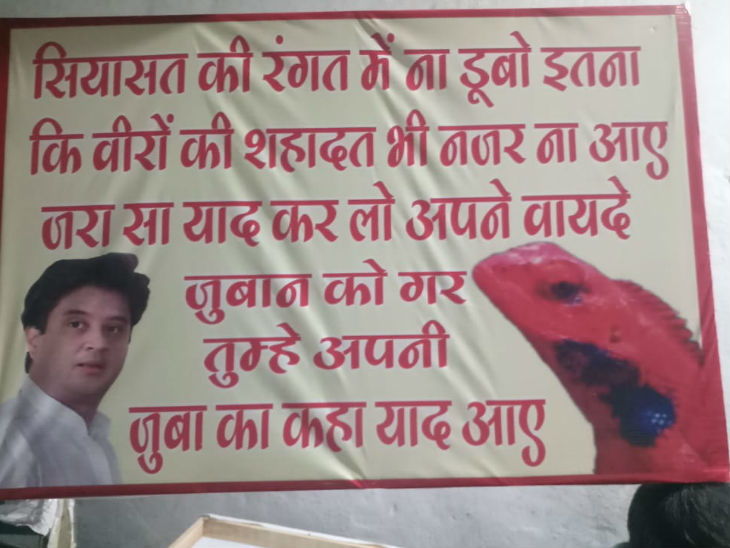 सियासत की रंगत में ना डूबो इतना
कि वीरों की शहादत भी नजर ना आए
जरा सा याद कर लो अपने वायदे
जुबान को गर
तुम्हे अपनी
जुबा का कहा याद आए